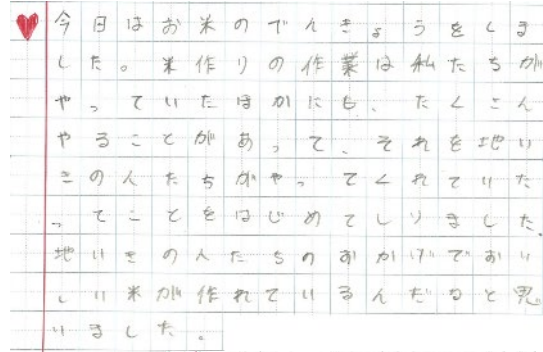 今日はお米のでんきょうをしま
した。米作りの作業は私たちが
やっていたほかにも、たくさん
やることがあって、それを地い
きの人たちがやってくれていた
ってことをはじめてしりました。
地いきの人たちのおかげでおい
しい米が作れているんだなと思
いました。